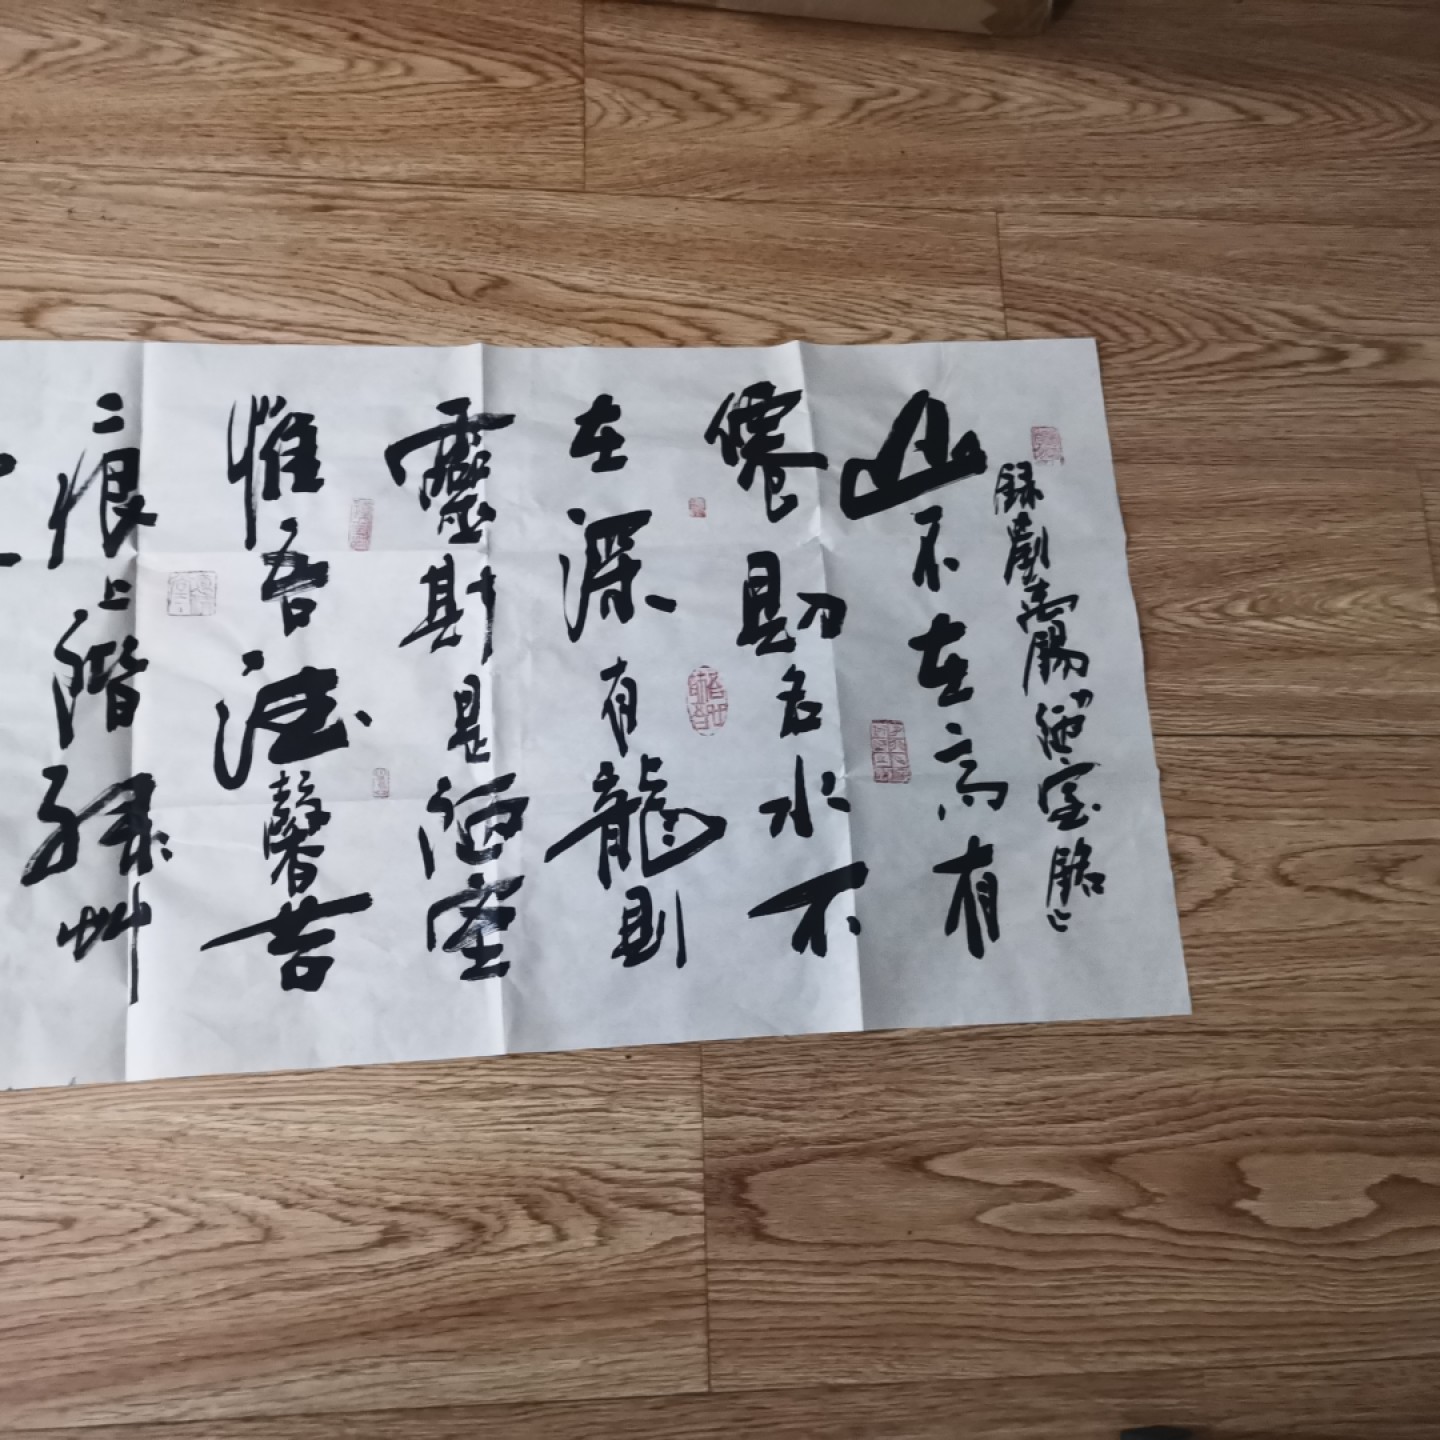 錄劉禹錫《陋室銘》
山不在高有
僊則名水不
在深有龍則
靈斯是陋室
惟吾德馨苔
二痕上階綠艸